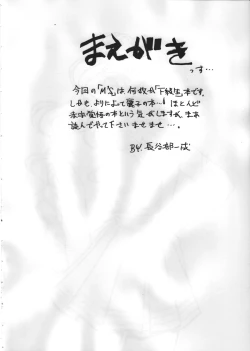 まえがき
っす…
今回の「M'S」は何故か「下級生」本です。
しかも、よりによって麗子の本…!ほとんど
赤字覚悟の本という気がしますが、まあ
読んでやって下さいませませ…。
BY. 長谷部一成